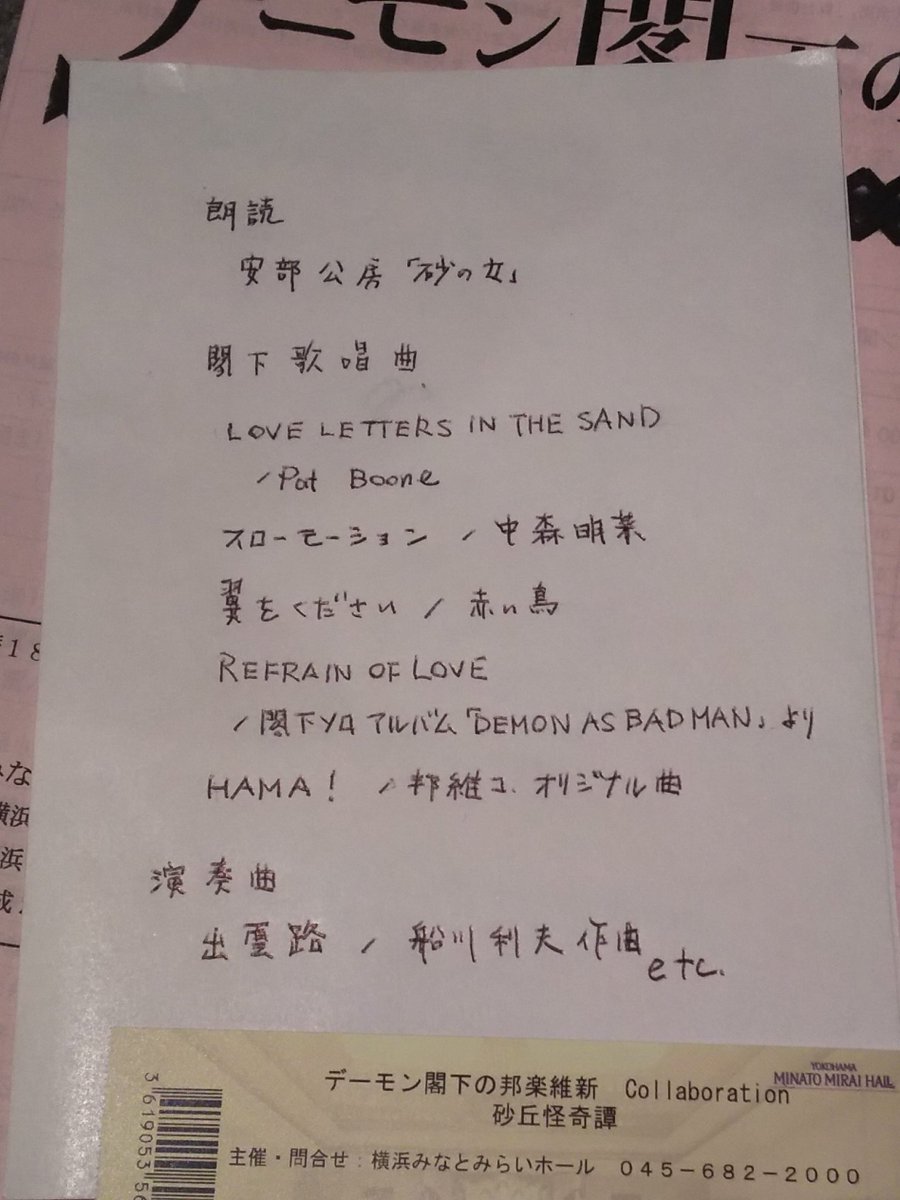 デーモン閣下の
朗読
安部公房「砂の女」
閣下歌唱曲
LOVE LETTERS IN THE SAND
/Pat Boone
スローモーション / 中森明菜
翼をください / 赤い鳥
REFRAIN OF LOVE
/閣下ソロアルバム「DEMON AS BAD MAN」より
HAMA! / 邦維コ.オリジナル曲
演奏曲
出雲路 / 船川利夫作曲
etc.
18
みな
横浜
浜
成
YOKOHAMA
MINATO MIRAI HALL
デーモン閣下の邦楽維新 Collaboration
砂丘怪奇譚
主催・問合せ:横浜みなとみらいホール 045-682-2000
3619053156